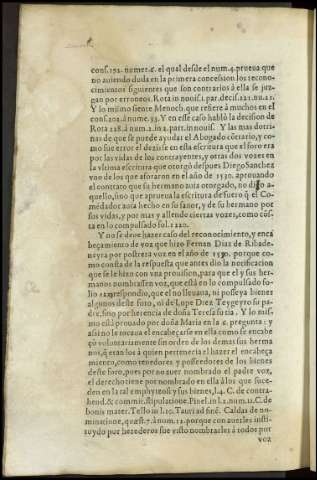 cons.192. numer.6. el qual desde el num.4. prueua que
no auiendo duda en la primera concession los recono-
cimientos siguientes que son contrarios á ella se juz-
gan por erroneos. Rota in nouiss. 1. par. decis. 121. nu. 21.
Y lo mismo siente Menoch. que refiere á muchos en el
cons. 201. á nume. 33. Y en este caso habló la decision de
Rota 228. á num. 2. in 2. part. in nouiss. Y las mas dotri-
nas de que se puede ayudar el Abogado cõtrario, y co-
mo fue error el dezirse en esta escritura que el foro era
por las vidas de los contrayentes, y otras dos vozes en
la vltima escritura que otorgò despues Diego Sanchez
vno de los que aforaron en el año de 1530. aprouando
el contrato que su hermano auia otorgado, no dijo a-
quello, sino que aprueua la escritura de fuero q̃ el Co-
mẽdador auia hecho en su fauor, y de su hermano por
sus vidas, y por mas y allende ciertas vozes, como cõs-
ta en lo compulsado fol. 1220.
Y no se deue hazer caso del reconocimiento, y enca
beçamiento de voz que hizo Fernan Diaz de Ribade-
neyra por postrera voz en el año de 1550. porque co-
mo consta de la respuesta que antes dio la notificacion
que se le hizo con vna prouision, para que el y sus her-
manos nombrassen voz, que està en lo compulsado fo-
lio 1223. respondio, que el no lleuaua, ni posseya bienes
algunos deste foro, ni de Lupe Diez Teygeyro su pa-
dre, sino por herencia de doña Teresa su tia. Y lo mis-
mo està prouado por doña Maria en la pregunta: y
assi no le tocaua el encabeçarse en ella como se encabe
çó voluntariamente sin orden de los demas sus herma
nos, q̃ eran los á quien pertenecia el hazer el encabeça
miento, como tenedores, y posseedores de los bienes
deste foro, pues por no auer nombrado el padre voz,
el derecho tiene por nombrado en ella á los que suce-
den en la tal emphyteosis y sus bienes, l.4. C. de contra-
hend. & commit. stipulatione. Pinel. in l.2. num. 12. C. de
bonis mater. Tello in l.16. Tauri ad finẽ. Caldas de no-
minatione, quæst.7. á num.12. porque con auerles insti-
tuydo por herederos fue visto nombrarles á todos por
voz